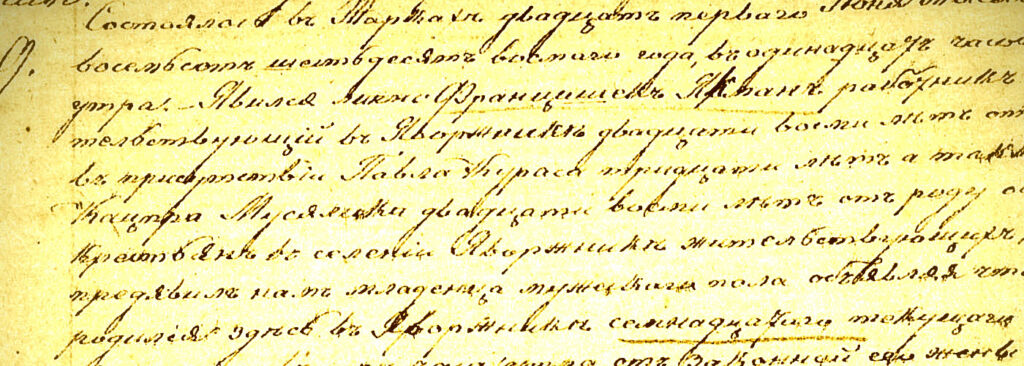 Состоялось въ Маркахъ двадцать перваго Іюня тысяча
9. восемьсотъ шестьдесятъ восмаго года, въ одинадцать часо
утра. Явился лично Францишекъ Якпанъ работникъ
тельствующій въ Яворжникѣ двадцати восми лѣтъ от
въ присутствіи Павла Кураса тридцати лѣтъ а так
Кацпра Мусялики двадцати восми лѣтъ отъ роду
крестьянъ въ селеніи Яворжникѣ жительствующихъ
предявилъ намъ младенца мужескаго пола объявляя что
родился здѣсь въ Яворжникѣ семнадцатого текущаго
утра отъ законной его жены